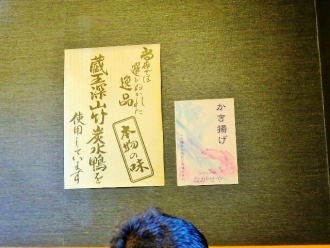 当店では
選びぬかれた
逸品
本物の味
蔵王深山竹炭水鴨を
使用しています
かき揚げ